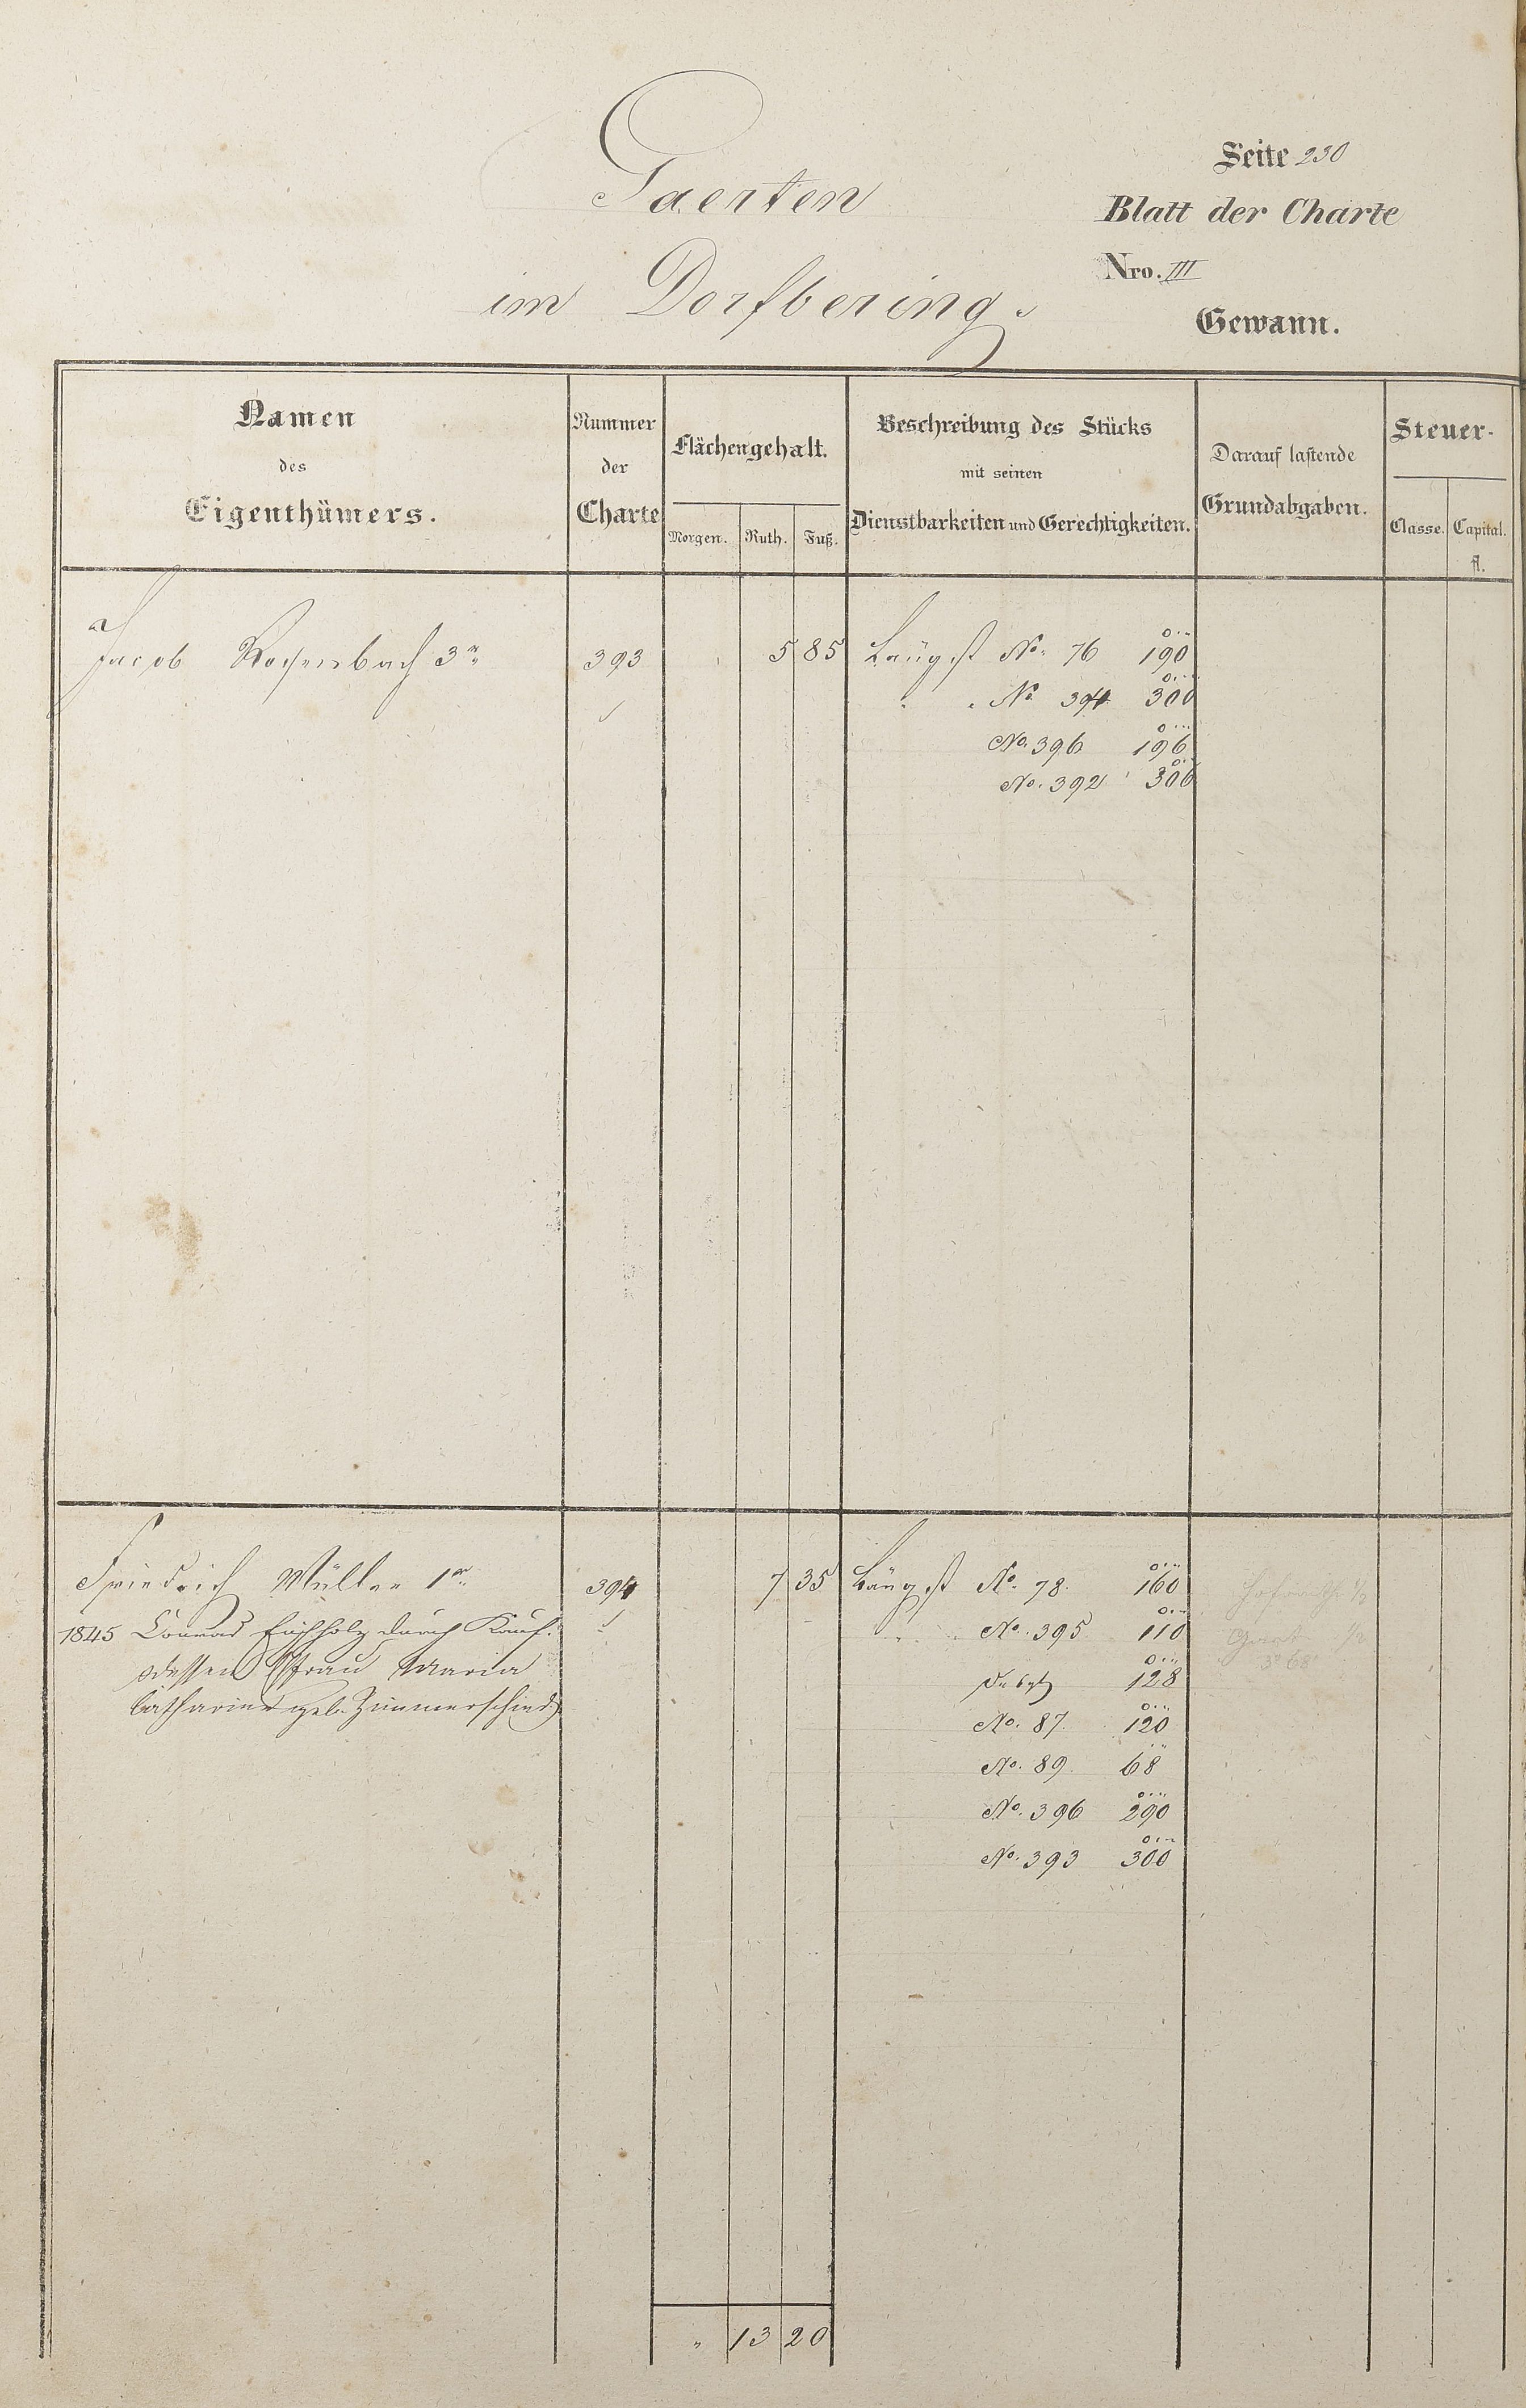 Gaerten
im Dorfbering.
Seite 230
Blatt der Charte
Nro. III
Gewann.
Namen
des
Eigenthümers.
Nummer
der
Charte
Flächengehalt.
Morgen. Ruth. Fuß.
Beschreibung des Stücks
mit seinen
Dienstbarkeiten und Gerechtigkeiten.
Darauf lastende
Grundabgaben.
Steuer-
Classe. Capital.
fl.
Jacob 3r 393 5 85 Längst No. 76 190
" " No 394 300
No. 396 196
No. 392 300
Friedrich Müller 1r 394 7 35 Längst No. 78. 160
1845 Conrad Eichholz durch Kauf. " " No. 395 110
dessen Ehefrau Maria 128
Catharina geb. Zimmerschied No. 87. 120
No. 89. 68
No. 396 290
No. 393 300
Hofr. 1/2
Gart 1/2
3° 68'
" 13 20